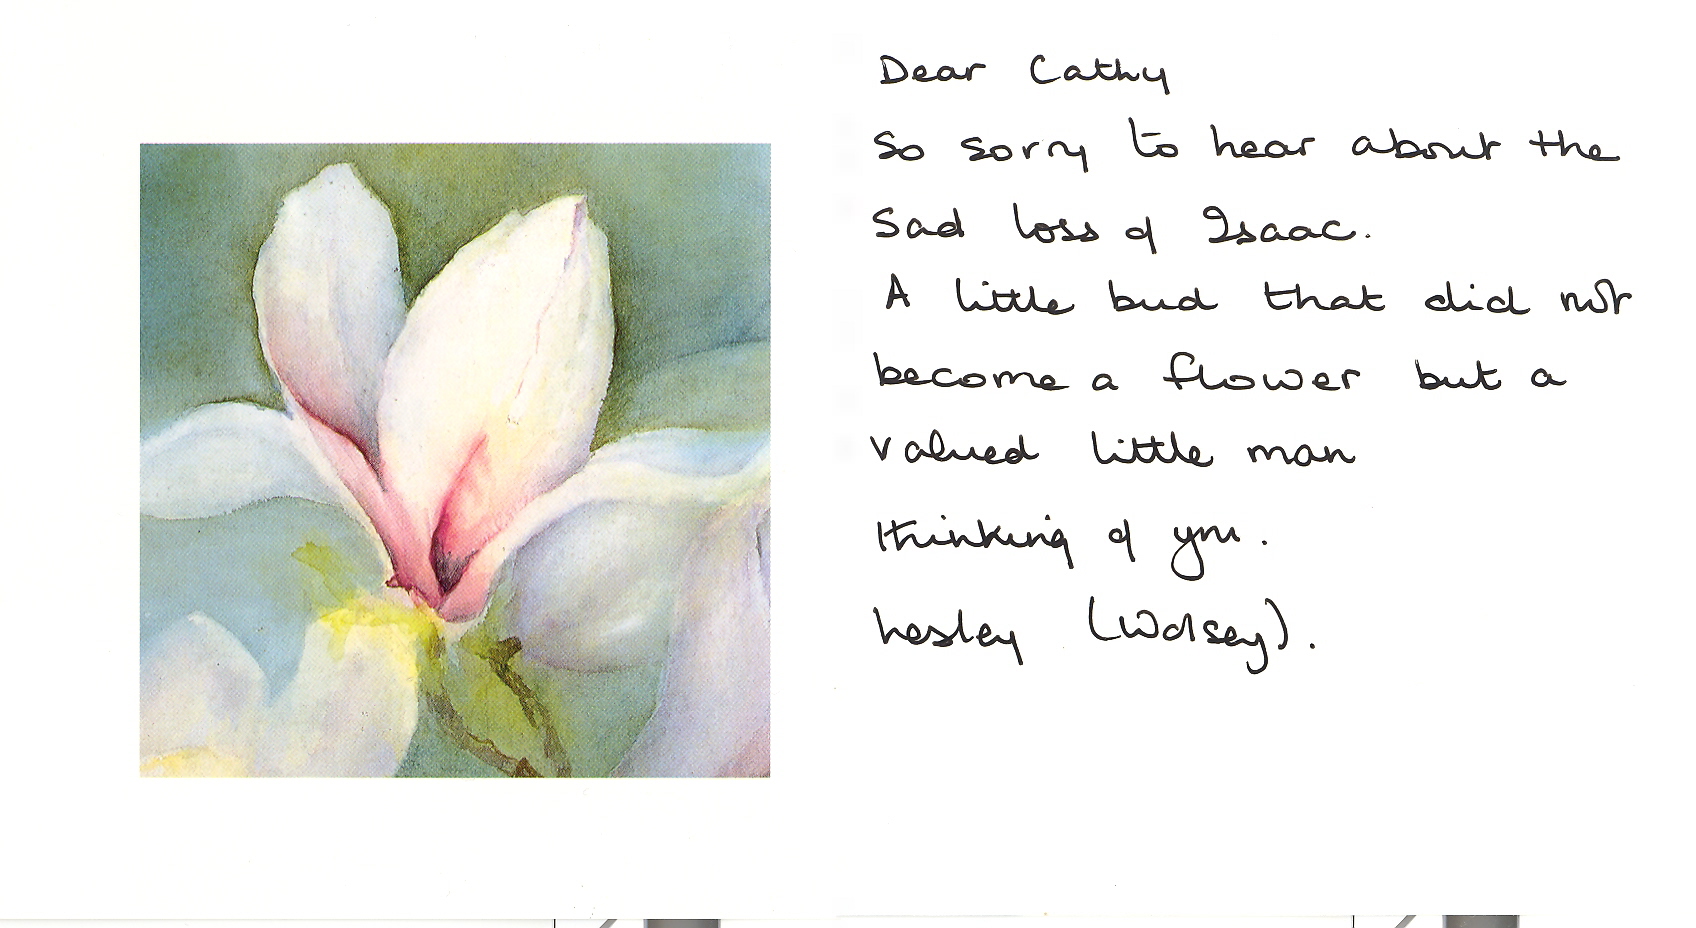 Dear Cathy
So sorry to hear about the
sad loss of Isaac.
A little bud that did not
become a flower but a
valued little man
thinking of you.
Lesley (Wolsey).